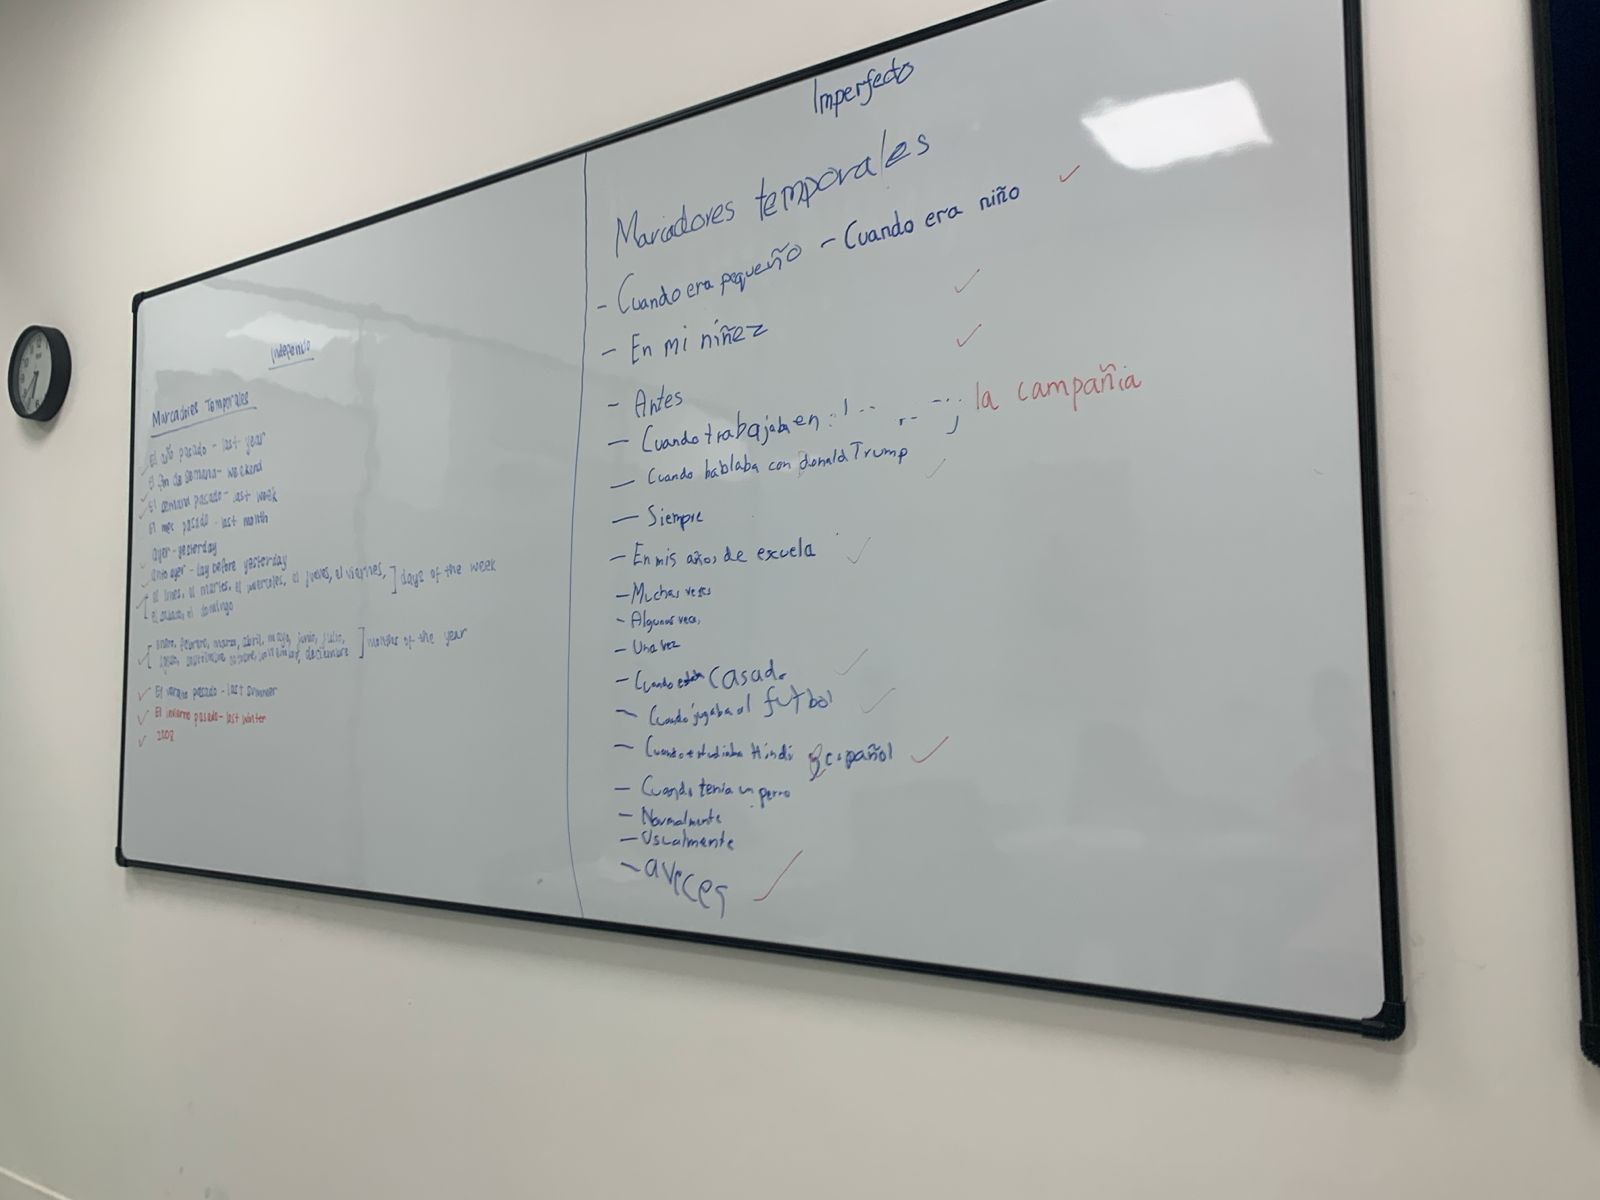 Marcadores Temporales
El año pasado - last year
El fin de semana - weekend
El semana pasado - last week
El mes pasado - last month
ayer - yesterday
anteayer - day before yesterday
el lunes, el martes, el miercoles, el jueves, el viernes, ] days of the week
el sabado, el domingo
enero, febrero, marzo, abril, mayo, junio, julio, ] months of the year
El verano pasado - last summer
El invierno pasado - last winter
2008
Imperfecto
Marcadores temporales
- Cuando era pequeño - Cuando era niño
- En mi niñez
- Antes
- Cuando trabajaba en la campañia
- Cuando hablaba con Donald Trump
- Siempre
- En mis años de escuela
- Muchas veces
- Algunas veces
- Una vez
- Cuando casado
- Cuando jugaba al futbol
- Cuando estudiaba Hindi español
- Cuando tenia un perro
- Normalmente
- Usualmente
- aveces